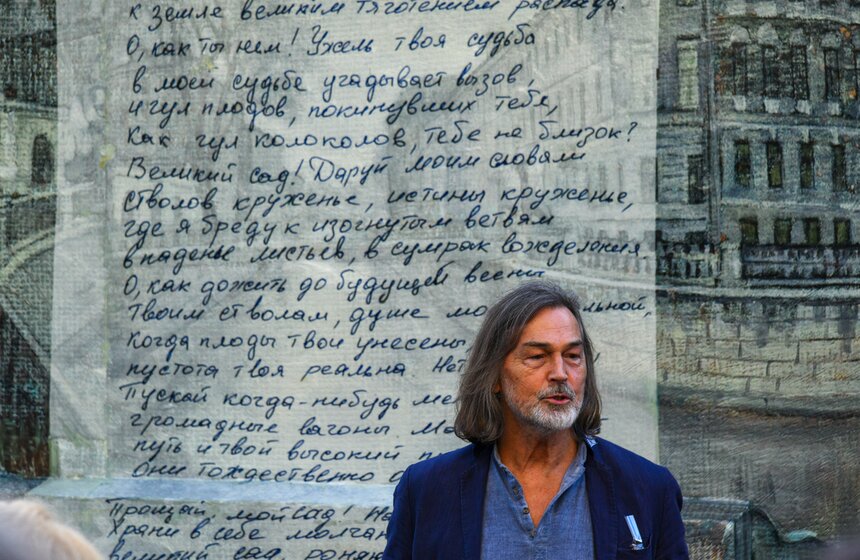 к земле великим тяготением распада.
О, как ты нем! Ужель твоя судьба
в моей судьбе угадывает вызов,
и гул плодов, покинувших тебя,
как гул колоколов, тебе не близок?
Великий сад! Даруй моим словам
стволов круженье, истины круженье,
где я бреду к изогнутым ветвям
в паденье листьев, в сумрак вожделения.
О, как дожить до будущей весны
твоим стволам, душе мо льной,
когда плоды твои унесены
пустота твоя реальна. Нет
Пускай когда-нибудь ме
громадные вагоны.
путь и твой высокий
они тождественно
Прощай, мой сад! На
Храни в себе молчан
великий сад,